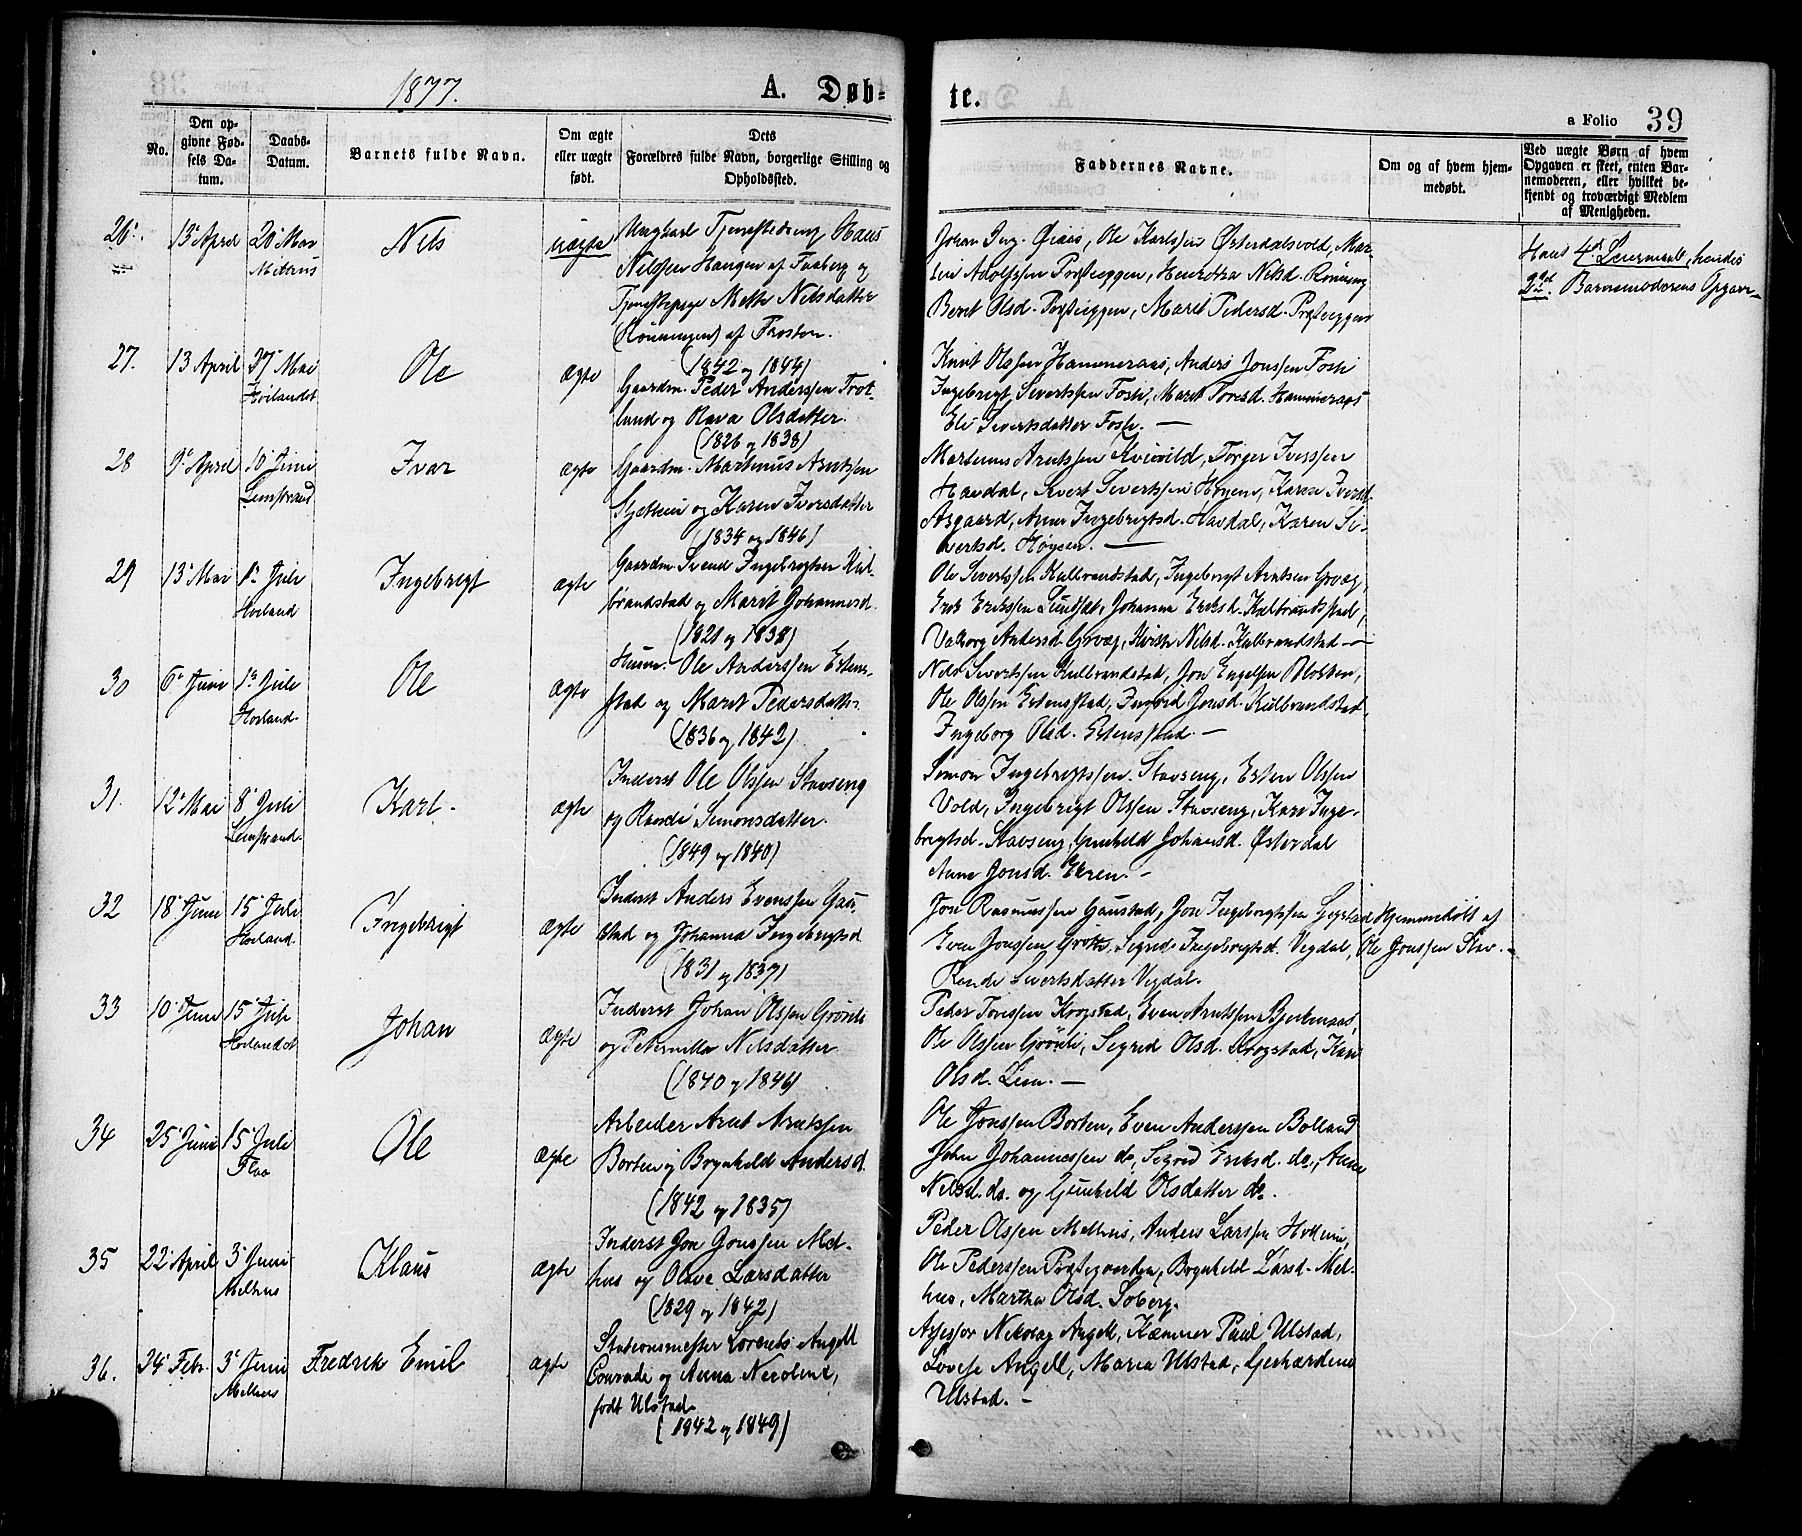 1877.
A. Døb-
te.
a Folio 39
No.
Den op-
givne Fød-
sels Da-
tum.
Daabs-
Datum.
Barnets fulde Navn.
Om ægte
eller uægte
født.
Dets
Forældres fulde Navn, borgerlige Stilling og
Opholdssted.
Faddernes Navne.
Om og af hvem hjem-
medøbt.
Ved uægte Børn af hvem
Opgaven er skeet, enten Bar-
nemoderen, eller hvilket be-
kjendt og troværdigt Medlem
af Menigheden.
26. 13 April 20 Mai
Melhus
Nels
uægte
Ungkarl Tjenestedreng Hans
Nilssen Haugen af Faaberg og
Tjenestepige Mette Nilsdatter
(Rönningen) af Frosten.
Ole Karlssen Østerdalsvold, Mar-
tin Adolfssen Præsteggen, Nilsd. Rönning
Beret Olsd. Præsteggen, Marit Pedersd. Præsteggen
Hans 4d Leiermaal, hendes
2det. Barnemoderens Opgave
27. 13 April 27 Mai
Hölandet
Ole
Ægte
(1842 og 1844)
Gaardm. Peder Anderssen Trot-
land og Olsdatter.
Knut Olssen Hammeraas, Anders Jonssen Foss
Ingebrigt Sivertssen Foss, Marit Toresd. Hammeraas
Eli Sivertsdatter Foss. —
28 9 April 10 Juni
Leinstrand
Ivar
ægte
(1826 og 1838)
Gaardm. Martinus Arntssen
og Karen Iversdatter
(1834 og 1846)
Martinus Arntssen Kvivild, Torger Iverssen
Havdal, Sivert Sivertssen Høyem, Karen Iversd.
Asgaard, Anne Ingebrigtsd. Havdal, Karen Si-
vertsd. Høyem. —
29 13 Mai 1 Juli
Höland
Ingebrigt
ægte
Gaardm Svend Ingebrigtsen Kul-
brandstad og Marit Johannesd.
(1821 og 1838)
Ole Sivertssen Kulbrandstad, Ingebrigt Arntsen Gravg,
Erik Erikssen Sundset, Johanna Eriksd. Kulbrandstad,
Valborg Andersd Nilsd. Kulbrandstad —
30 6 Juni 1 Juli
Höland
Ole
Ægte
Husm. Ole Anderssen Estens-
stad og Marit Pedersdatter
(1836 og 1842)
Nils Sivertssen Kulbrandstad, Jon Engelsen
Ole Olssen Estensstad, Ingrid Jonsd. Kulbrandstad,
Ingeborg Olsd. Estensstad. —
31. 12 Mai 8 Juli
Leinstrand
Karl.
ægte
Inderst Ole Olssen Stavseng
og Randi Simonsdatter.
(1849 og 1840)
Simon Ingebrigtssen Stavseng, Esten Olssen
Vold, Ingebrigt Olssen Stavseng, Kari Inge-
brigtsd. Stavseng, Gunhild Johansd. Østerdal
Anne Jonsd. Ekren. —
32 18 Juni 15 Juli
Höland
Ingebrigt
Ægte
Inderst Anders Evenssen Gau-
stad og Johanna Ingebrigtsd
(1831 og 1837)
Jon Rasmussen Gaustad, Jon Ingebrigtssen
Even Jonssen Sigrid Ingebrigtsd. Vegdal,
Randi Sivertsdatter Vegdal.
Hjemmedöbt af
Ole Jonssen Stav. —
33 10 Juni 15 Juli
Hölandet
Johan
Ægte
Inderst Johan Olssen Grönli
og Peternille Nilsdatter
(1840 og 1846)
Peder Toressen Krogstad, Even Arntssen
Ole Olssen Grönli, Sigrid Olsd. Krogstad, Kari
Olsd. Lem. —
34 25 Juni 15 Juli
Flaa
Ole
Ægte
Arbeider Arnt Arntssen
Borten og Brynhild Andersd.
(1842 og 1835)
Ole Jonssen Borten, Even Anderssen Bolland
John Johannessen do, Sigrid Eriksd. do, Anne
Nilsd. do. og Gunhild Olsdatter do.
35 22 April 3 Juni
Melhus
Klaus
Ægte
Inderst Jon Jonssen Mel-
hus og Olave Larsdatter
(1829 og 1842)
Peder Olssen Melhus, Anders Larssen
Ole Pederssen Præstegaarden, Brynhild Larsd. Mel-
hus, Martha Olsd. Söberg.
36. 24 Febr. 3 Juni
Melhus
Fredrik Emil
Ægte
Stationsmester Lorents Angell
Conradi og Anna Nicoline,
født Ulstad.
(1842 og 1849)
Assessor Nikolay Angell, Kæmner Paul Ulstad,
Lovise Angell, Maria Ulstad, Gerhardine
Ulstad. —